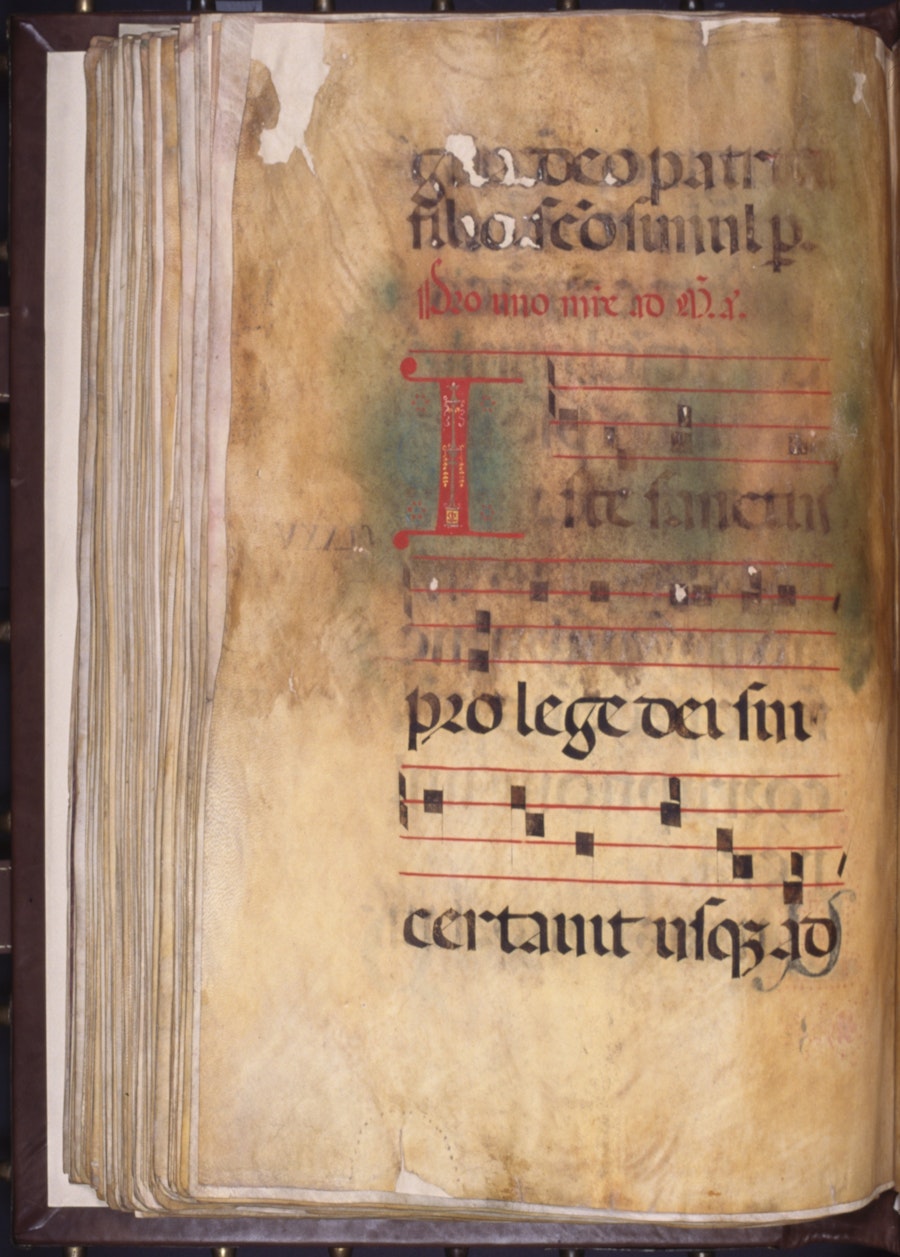 deo patri
filio scõ simul p.
Pro uno mr̃e ad M̃. a.
Iste sanctus
pro lege dei sui
certauit usqꝫ ad